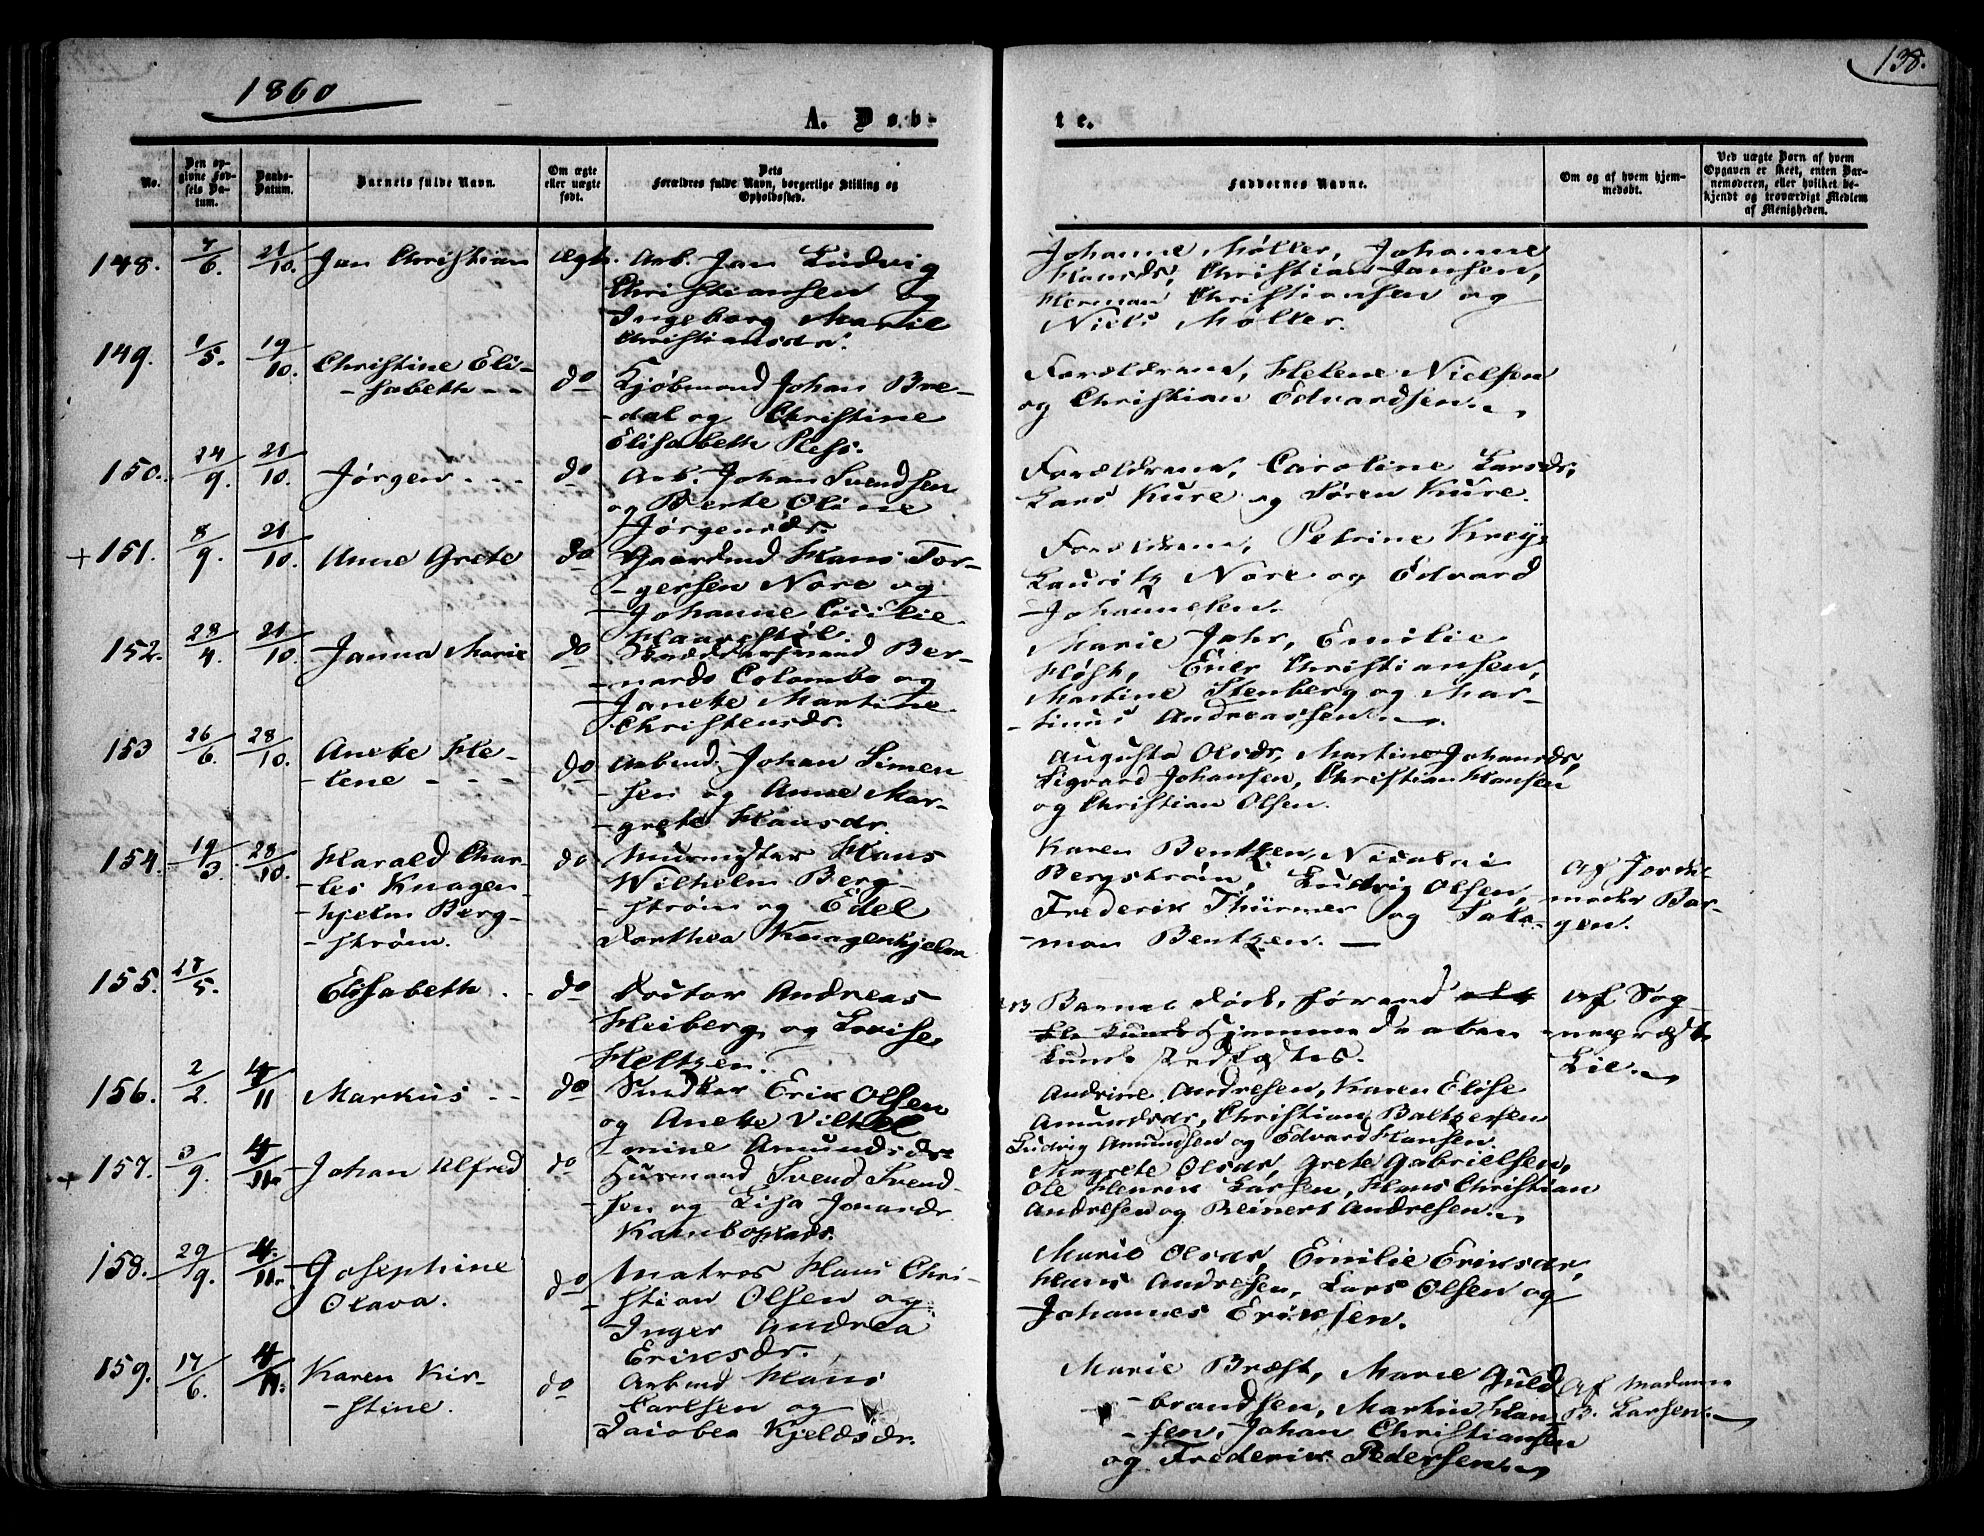 1860
138.
A. Døb-
te.
No.
Den op-
givne Fød-
sels Da-
tum.
Daabs-
Datum.
Barnets fulde Navn.
Om ægte
eller uægte
født.
Dets
Forældres fulde Navn, borgerlige Stilling og
Opholdssted.
Faddernes Navne.
Om og af hvem hjem-
medøbt.
Ved uægte Børn af hvem
Opgaven er skeet, enten Bar-
nemoderen, eller hvilket be-
kjendt og troværdigt Medlem
af Menigheden.
148. 7/6. 21/10. Jan Christian ægte. Arb. Jan Ludvig
Christiansen og
Ingeborg Marie
Christiansdr.
Johanne Møller, Johanne
Hansdr, Christian Jansen,
Herman Christiansen og
Niels Møller.
149. 1/5. 19/10. Christine Eli-
-sabeth - - do Kjøbmand Johan Bre-
-dal og Christine
Elisabeth Resø.
Forældrene, Helene Nielsen
og Christian Edvardsen.
150. 24/9. 21/10. Jørgen - - - do Arb. Johan Svendsen
og Berte Oline
Jørgensdr.
Forældrene, Caroline Larsdr,
Lars Kure og Søren Kure.
+ 151. 8/9. 21/10. Anne Grete do Gaardmd Hans Tor-
-gersen Nore og
-Johanne Cicilie

Forældrene, Petrine Krey,
Lauritz Nore og Edvard
Johannesen.
152. 28/4. 21/10. Janna Marie do Skræddersvend Ber-
-nardo Colombo og
-Janeke Martine
Christensdr.
Marie Jahr, Emilie
Høsk, Christiansen,
Martine Stenberg og Mar-
-tinus Andreassen.
153 26/6. 28/10. Aneke He-
-lene - - - do Arbmd. Johan Simen
-sen og Anne Mar-
-grete Hansdr.
Augusta Olsdr, Martine Johansdr,
Sigvard Johansen, Christian Hansen
og Christian Olsen.
154. 19/3. 28/10. Harald Char-
-les Knagen-
-hjelm Berg-
-strøm. do Murmester Hans
Wilhelm Berg-
-strøm og Edel
Dorthea Knagenhjelm
Karen Bentzen, Nicolai
Bergstrøm, Ludvig Olsen,
Frederik Thürmer og Salo-
-mon Bentzen. —
Af Jorde-
moder Bør-
gen.
155. 28/5. Elisabeth . . do Doctor Andreas
Heiberg og Lovise
Heltzen.
Barnet døde, førend
Hjemmedaaben
kunde stadfæstes.
Af Sog-
nepræst
Lie.
156. 2/2. 4/11 Markus - - do Snedker Erik Olsen
og Aneke Vilhel
-mine Amundsdr
Andrine Andresen, Karen Elise
Amundsdr, Christian Baltzersen
Ludvig Amundsen og Edvard Hansen.
+ 157. 3/9. 4/11. Johan Alfred do Huusmand Svend Svend-
-sen og Lisa Jonasdr.

Margrete Olsdr, Grete Gabrielsen,
Ole Henrik Larsen, Hans Christian
Andresen og Reinert Andresen.
158. 29/9. 4/11. Josephine
Olava. do Matros Hans Chri-
-stian Olsen og
-Inger Andrea
Eriksdr.
Marie Olsdr, Emilie Eriksdr,
Hans Andresen, Lars Olsen og
Johannes Eriksen.
159. 17/6. 4/11. Karen Kir-
-stine. do Arbmd Hans
Carlsen og
Jacobea Kjeldsdr.
Marie Bræst, Marie Guld
-brandsen, Martin Han-
-sen, Johan Christiansen
og Frederik Pedersen.
Af Madame
B. Larsen.